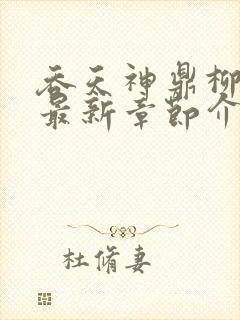 吞天神鼎柳
最新章節介
杜脩妻